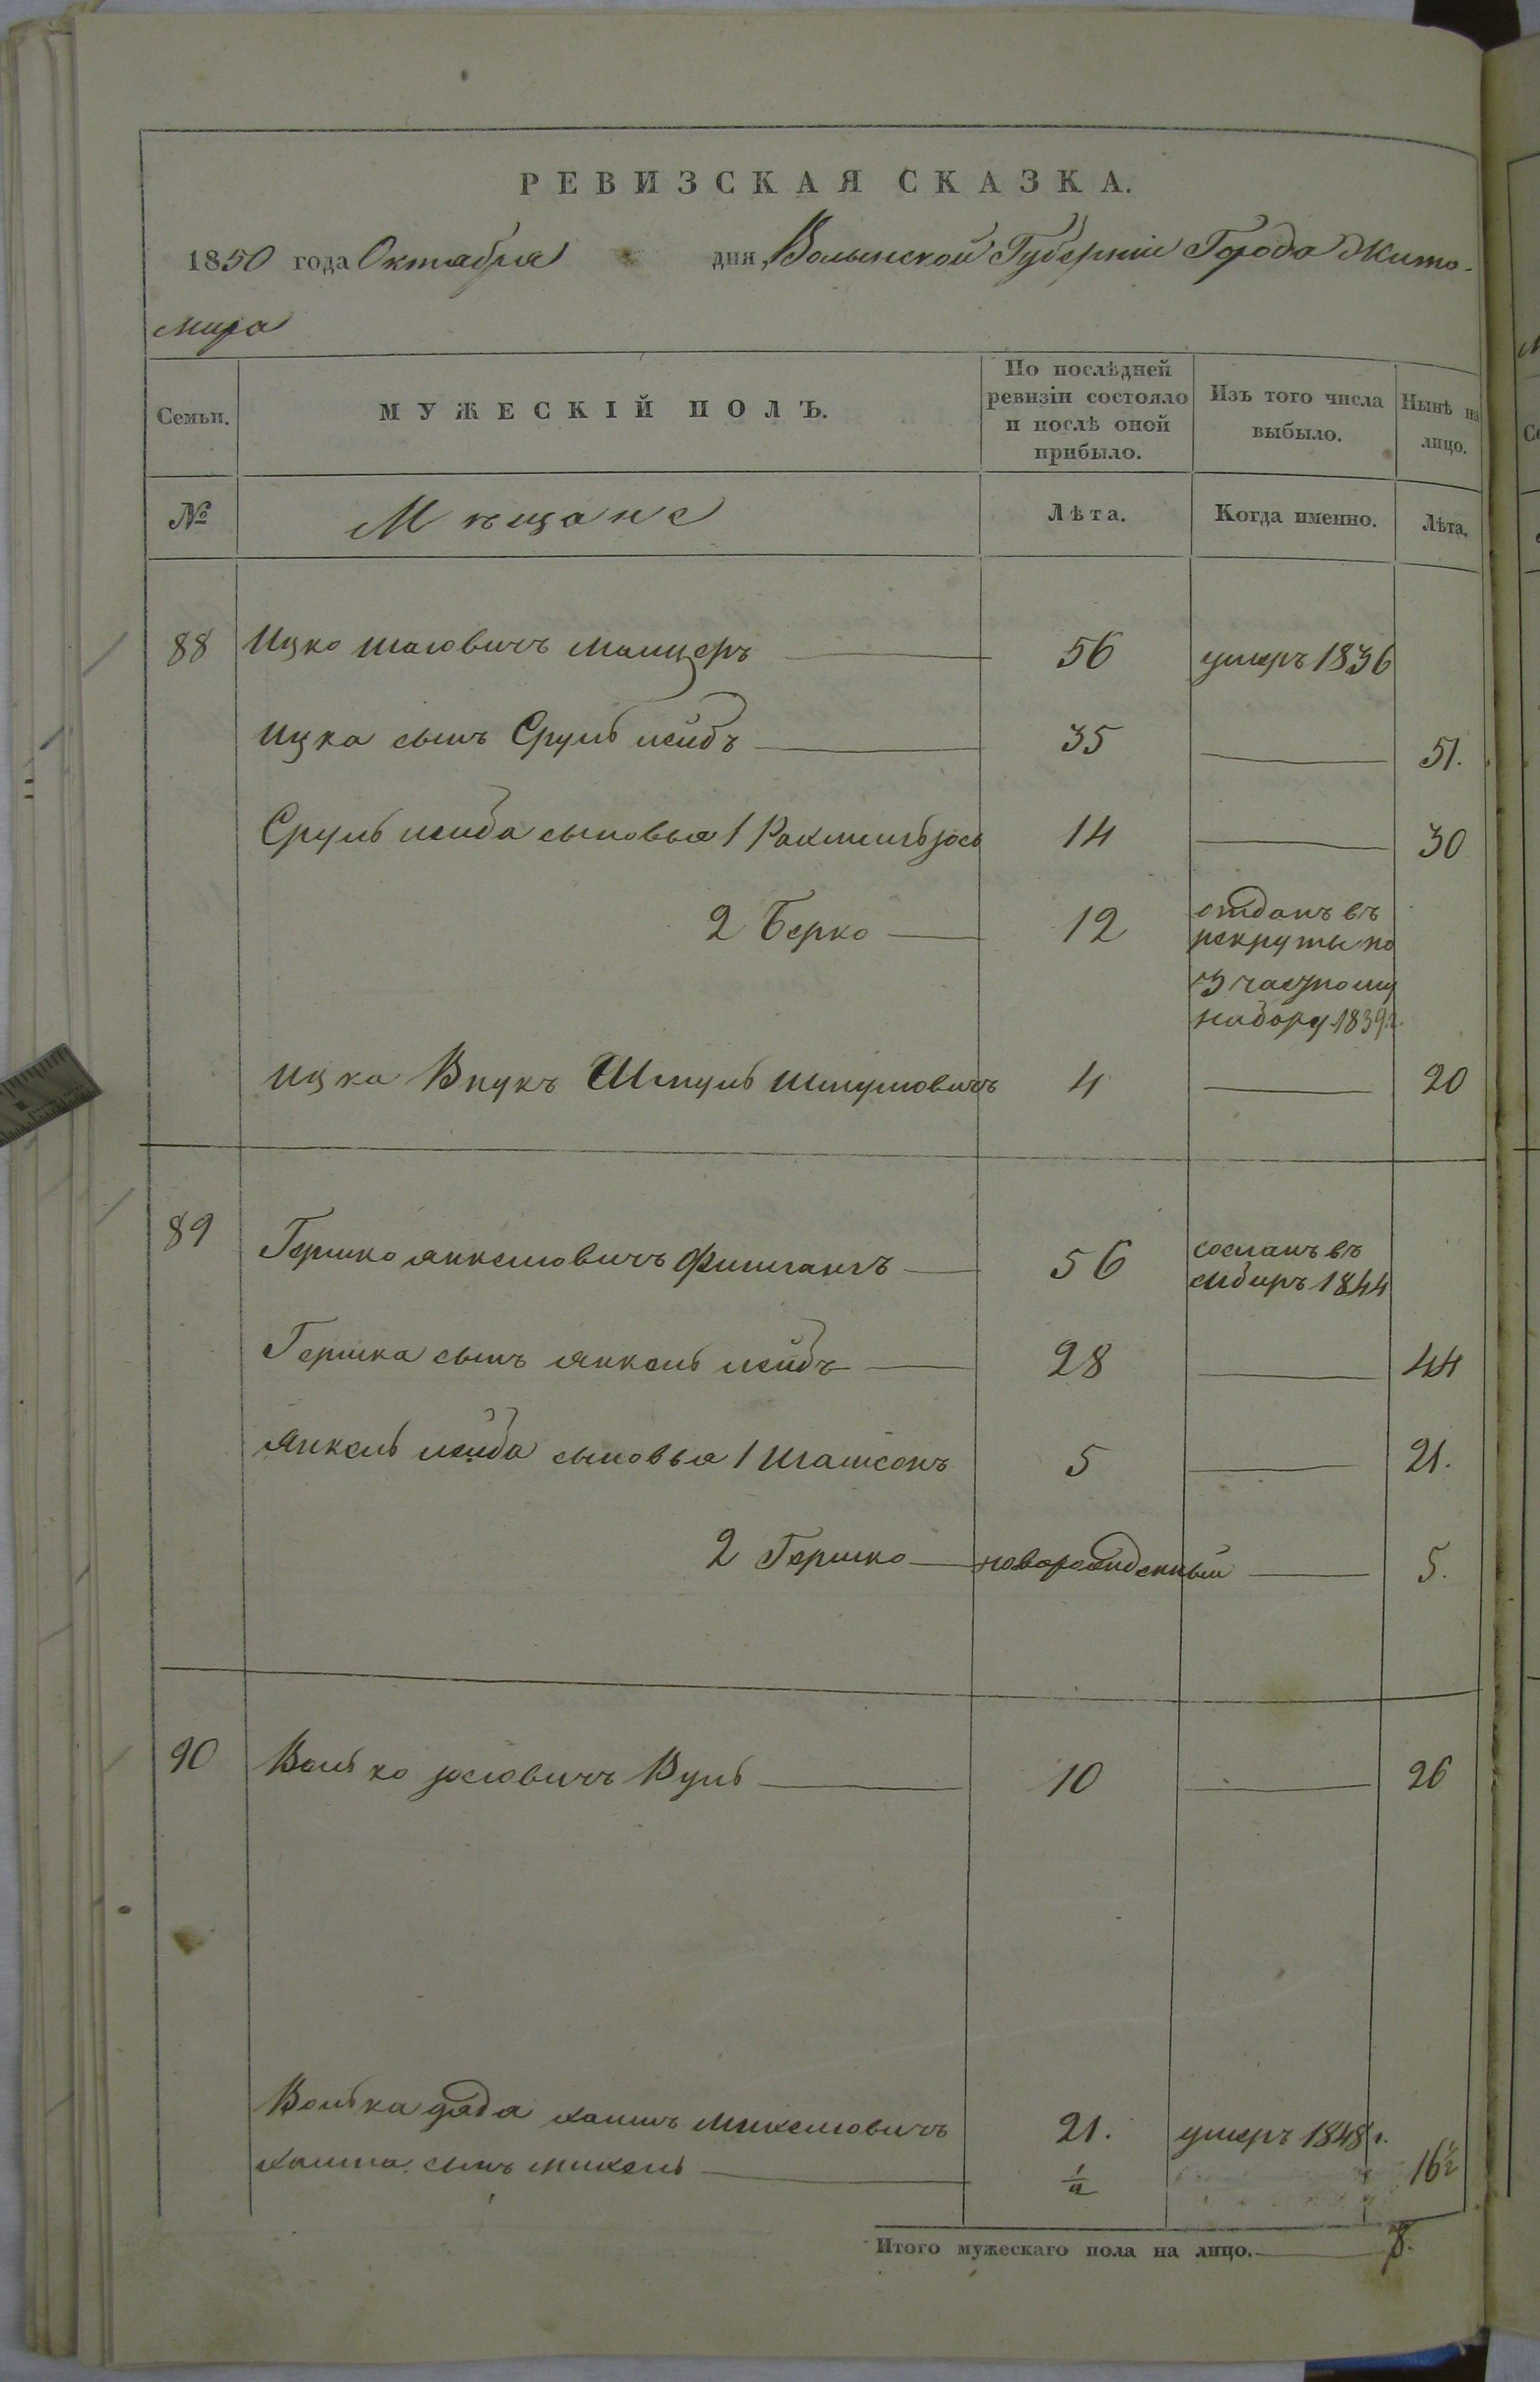 РЕВИЗСКАЯ СКАЗКА.
1850 года Октября дня, Волынской Губерніи Города Жито-
мира
Семьи. МУЖЕСКІЙ ПОЛЪ. По послѣдней ревизіи состояло и послѣ оной прибыло. Изъ того числа выбыло. Нынѣ на лицо.
№ Мѣщане Лѣта. Когда именно. Лѣта.
88 Ицко Шаевичъ 56 умеръ 1836
Ицка сынъ Сруль лейбъ 35 51.
Сруль лейба сыновья 1 Рахмиль Іось 14 30
2 Берко 12 отданъ въ
рекруты по
частному
набору 1839 г.
Ицка Внукъ Шмуль Шмулювичъ 4 20
89 Гершко Янкелювичъ Фишганъ 56 сосланъ въ
Сибиръ 1844
Гершка сынъ Янкель лейбъ 28 44
Янкель лейба сыновья 1 Шамсонъ 5 21.
2 Гершко новорожденный 5.
90 Волько Іосювичъ Вуль 10 26
Волька дядя Хаимъ Михелювичъ 21. умеръ 1848 г.
Хаима сынъ Михель 1/2 16 1/2
Итого мужескаго пола на лицо. 8.